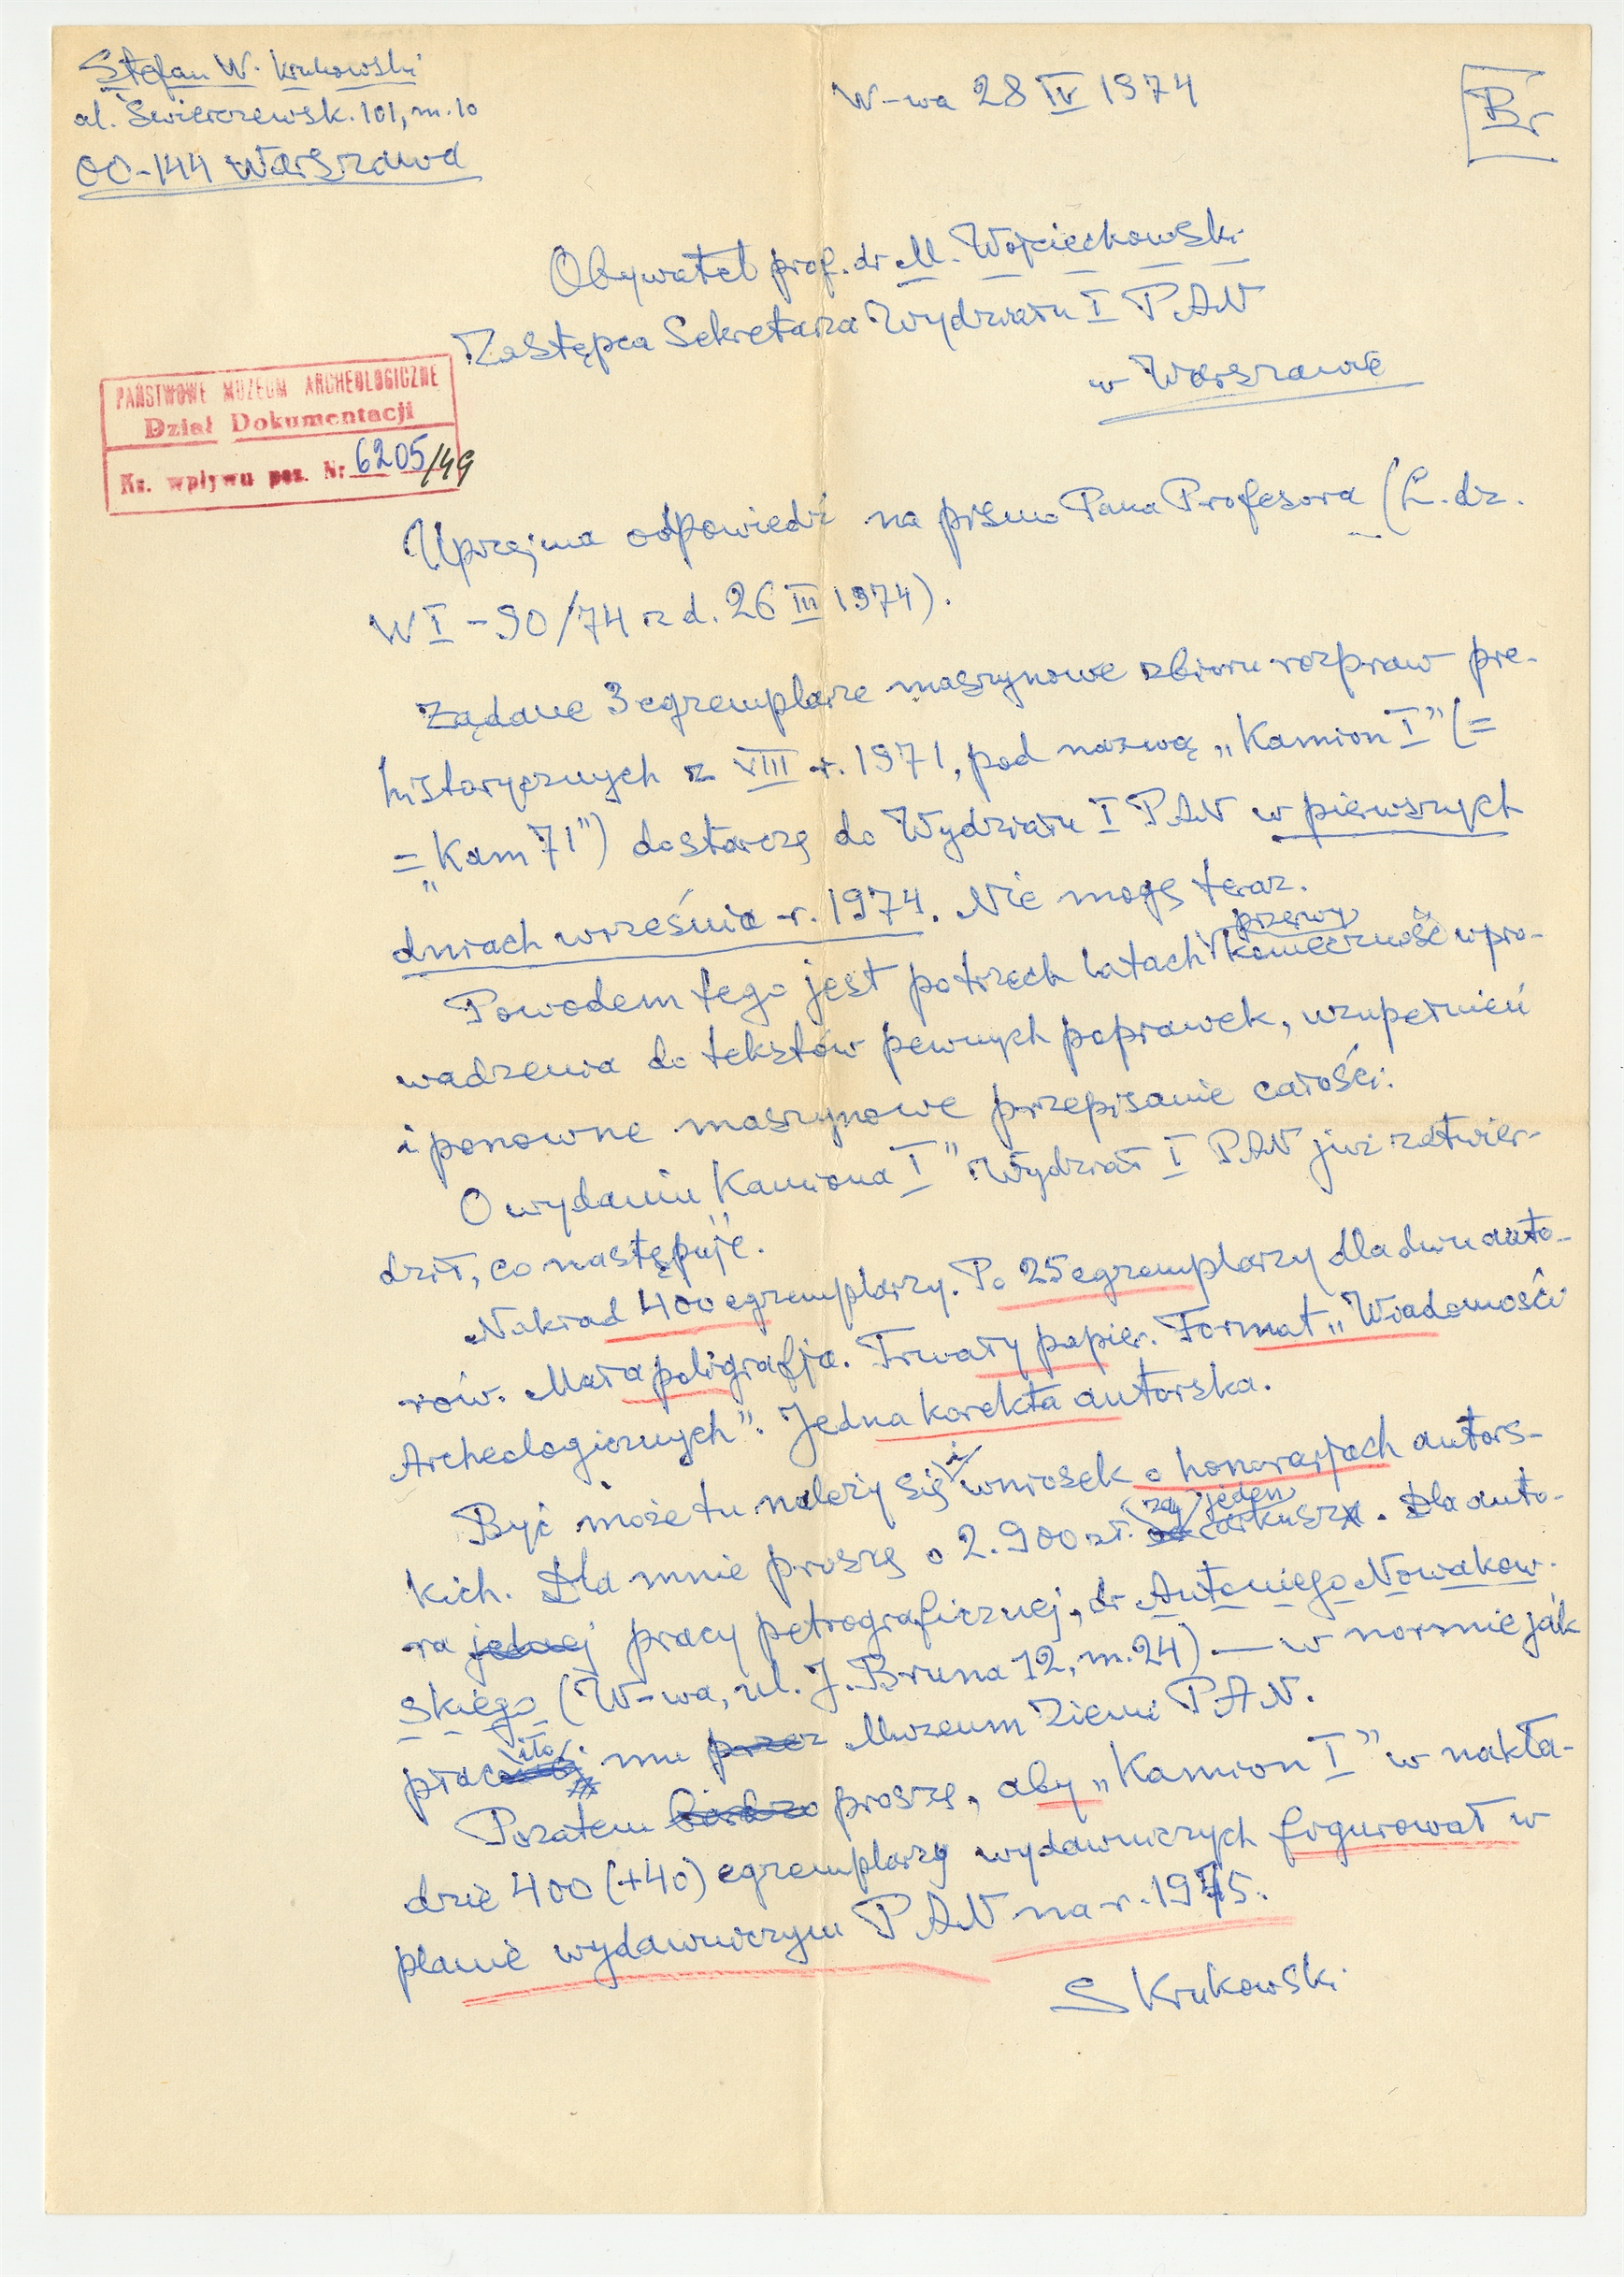 Stefan W. Krukowski
al. Świerczewsk. 101, m. 10
00-144 Warszawa
W-wa 28 IV 1974
Br
Obywatel prof. dr M. Wojciechowski
Zastępca Sekretarza Wydziału I PAN
w Warszawie
PAŃSTWOWE MUZEUM ARCHEOLOGICZNE
Dział Dokumentacji
Ks. wpływu poz. Nr 6205/49
Uprzejma odpowiedź na pismo Pana Profesora (L. dz.
W I – 90/74 z d. 26 III 1974).
Żądane 3 egzemplarze maszynowe zbioru rozpraw pre-
historycznych z VIII r. 1971, pod nazwą „Kamion I” (=
= „Kam 71”) dostarczę do Wydziału I PAN w pierwszych
dniach września r. 1974. Nie mogę teraz.
Powodem tego jest po trzech latach przerwy konieczność wpro-
wadzenia do tekstów pewnych poprawek, uzupełnień
i ponowne maszynowe przepisanie całości.
O wydaniu „Kamiona I” Wydział I PAN już zatwier-
dził, co następuje.
Nakład 400 egzemplarzy. Po 25 egzemplarzy dla dwu auto-
rów. Mała poligrafja. Trwały papier. Format „Wiadomości
Archeologicznych”. Jedna korekta autorska.
Być może tu należy się i wniosek o honorarjach autors-
kich. Dla mnie proszę o 2.900 zł. za jeden arkusz. Dla auto-
ra jednej pracy petrograficznej, dr Antoniego Nowakow-
skiego (W-wa, ul. J. Bruna 12, m. 24) — w normie jak
płaciło mu przez Muzeum Ziemi PAN.
Pozatem bardzo proszę, aby „Kamion I” w nakła-
dzie 400 (+40) egzemplarzy wydawniczych figurował w
planie wydawniczym PAN na r. 1975.
S Krukowski